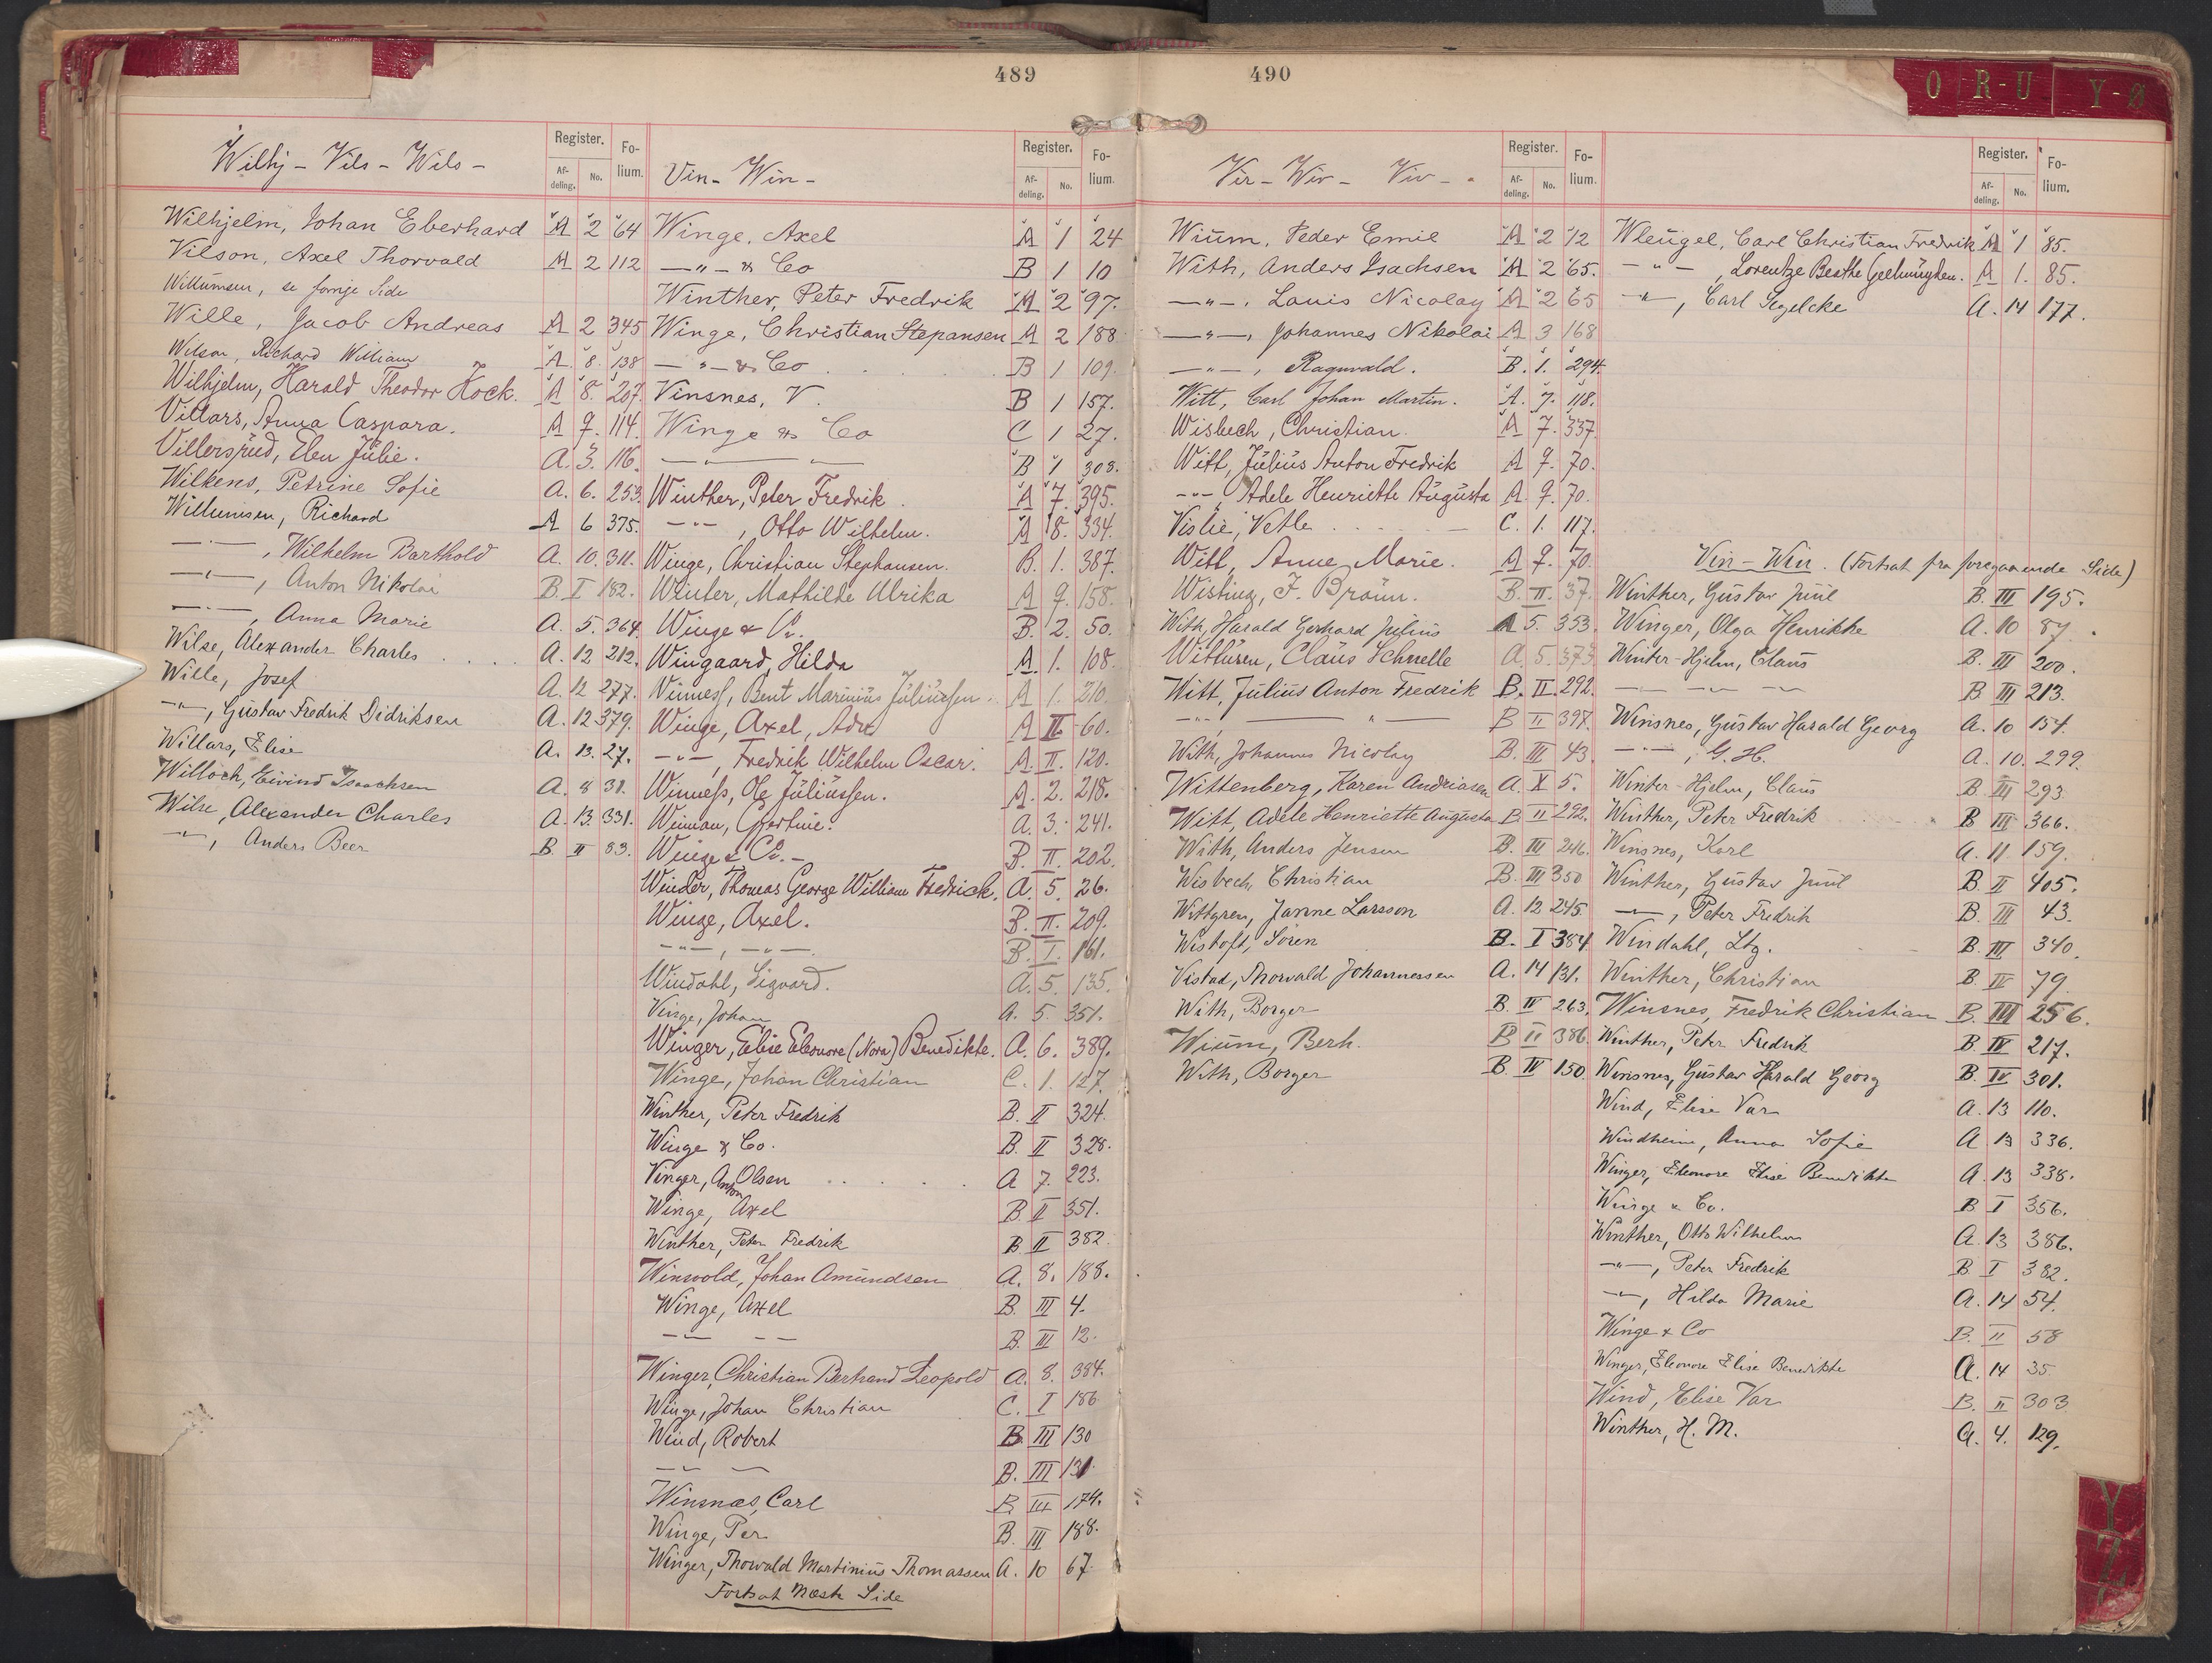 489
Wilhj - Vils - Wils -
Register. Fo-
Af- No. lium.
deling.
Wilhjelm, Johan Eberhard A 2 64
Vilson, Axel Thorvald A 2 112
Willumsen, se forrige Side
Wille, Jacob Andreas A 2 345
Wilson, Richard William A. 8. 138
Wilhjelm, Harald Theodor Kock. A 8. 207.
Villars, Anna Caspara. A 9. 114.
Villersrud, Elen Julie. A. 3. 116.
Wilkens, Petrine Sofie A. 6. 253.
Willumsen, Richard A 6 375.
—"—, Wilhelm Barthold A. 10. 311.
—"—, Anton Nikolai B. I 182.
—"—, Anna Marie A. 5. 364.
Wilse, Alexander Charles . . . . A. 12 212.
Wille, Josef A. 12 277.
—"—, Gustav Fredrik Didriksen A. 12 379.
Willars, Elise A. 13. 27.
Willoch, Eivind Isaachsen A. 8 31.
Wilse, Alexander Charles A. 13. 331.
—"—, Anders Beer B. II 83.
Vin - Win -
Register. Fo-
Af- No. lium.
deling.
Winge, Axel A 1 24
—"— & Co B 1 10
Winther, Peter Fredrik A 2 97.
Winge, Christian Stepansen A 2 188.
—"— & Co B 1 109.
Vinsnes, V. B 1 157.
Winge & Co C 1 27.
—"— B 1 308.
Winther, Peter Fredrik. A 7. 395.
—"—, Otto Wilhelm. A 8. 334.
Winge, Christian Stephansen. B. 1. 387.
Winter, Mathilde Ulrika A 9. 158.
Winge & Co. B. 2. 50.
Wingaard, Hilda A. 1. 108.
Winness, Bent Marinius Juliussen. A 1. 210.
Winge, Axel, Adv. A II 60.
—"—, Fredrik Wilhelm Oscar. A. II. 120.
Winness, Ole Juliussen. A. 2. 218.
Winman, Gjertine. A. 3. 241.
Winge & Co. - B. II. 202.
Winder, Thomas George William Fredrick. A. 5. 26.
Winge, Axel. B. II. 209.
—"—, —"— B. I. 161.
Windahl, Sigvard. A. 5. 135.
Vinge, Johan A. 5. 351.
Winger, Elise Eleonore (Nora) Benedikte. A. 6. 389.
Winge, Johan Christian C. 1. 127.
Winther, Peter Fredrik B. II 324.
Winge & Co. B. II 328.
Vinger, Anton Olsen . . . . . A 7. 223.
Winge, Axel B. II 351.
Winther, Peter Fredrik B. II 382.
Winsvold, Johan Amundsen A. 8. 188.
Winge, Axel B. III 4.
—"— —"— B. III 12.
Winger, Christian Bertrand Leopold A. 8. 384.
Winge, Johan Christian C. I 186
Wind, Robert B. III 130
—"— —"— B. III 131.
Winsnæs, Carl B. III 174.
Winge, Per. B. III 188.
Winger, Thorvald Martinius Thomassen A. 10 67
Fortsat Næste Side
490
Vir - Wir - Viv -
Register. Fo-
Af- No. lium.
deling.
Wium, Peder Emil A 2 12
With, Anders Isachsen A 2 65.
—"—, Louis Nicolay A 2 65
—"—, Johannes Nikolai A 3 168
—"—, Ragnvald. B. 1. 294.
Witt, Carl Johan Martin. A. 7. 118.
Wisbech, Christian. A 7. 357.
Witt, Julius Anton Fredrik A 9. 70.
—"—, Adele Henriette Augusta A. 9. 70.
Vislie, Vetle . . . . C. 1. 117.
Witt, Anne Marie. A 9. 70.
Wisting, J. Braun. B. II. 37.
With, Harald Gerhard Julius A 5. 353.
Witturen, Claus Schnelle A. 5. 373
Witt, Julius Anton Fredrik B. II. 292.
—"—, —"— B II 397.
With, Johannes Nicolay B. III 43
Wittenberg, Karen Andriasen A. X 5.
Witt, Adele Henriette Augusta B. II 292.
With, Anders Jensen B. III 246.
Wisbech, Christian B. III 350
Wittgren, Janne Larsson A. 12 245.
Wistoft, Søren B. I 384
Vistad, Thorvald Johannessen A. 14 131.
With, Borger B. IV 263.
Wium, Berh. B II 386.
With, Borger B. IV 150
Register. Fo-
Af- No. lium.
deling.
Wleugel, Carl Christian Fredrik A 1 85.
—"—, Lorentze Berthe Geelmuyden. A 1. 85.
—"—, Carl Segelcke A. 14 177.
Vin - Win. (Fortsat fra foregaaende Side)
Winther, Gustav Juul B. III 195.
Winger, Olga Henrikke A. 10 87.
Winter-Hjelm, Claus B. III 200.
—"— —"— —"— B III 213.
Winsnes, Gustav Harald Georg A. 10 154.
—"—, G. H. A. 10. 299.
Winter-Hjelm, Claus B. III 293
Winther, Peter Fredrik B III 366.
Winsnes, Karl A. 11. 159.
Winther, Gustav Juul B. II 405.
—"—, Peter Fredrik B. III 43.
Windahl, Ltz. B. III 340.
Winther, Christian B. IV 79
Winsnes, Fredrik Christian B. III 256.
Winther, Peter Fredrik B. IV 217.
Winsnes, Gustav Harald Georg B. IV 301.
Wind, Elise Var A. 13 110.
Windheim, Anna Sofie A 13 336.
Winger, Eleonore Elise Benedikte A. 13 338.
Winge & Co. B I 356.
Winther, Otto Wilhelm A. 13 386.
—"—, Peter Fredrik B I 382.
—"—, Hilda Marie A. 14 54.
Winge & Co B. II 58
Winger, Eleonore Elise Benedikte A. 14 35
Wind, Elise Var B. II 303
Winther, H. M. A. 4. 129.
O R-U Y-Ø
Y Z